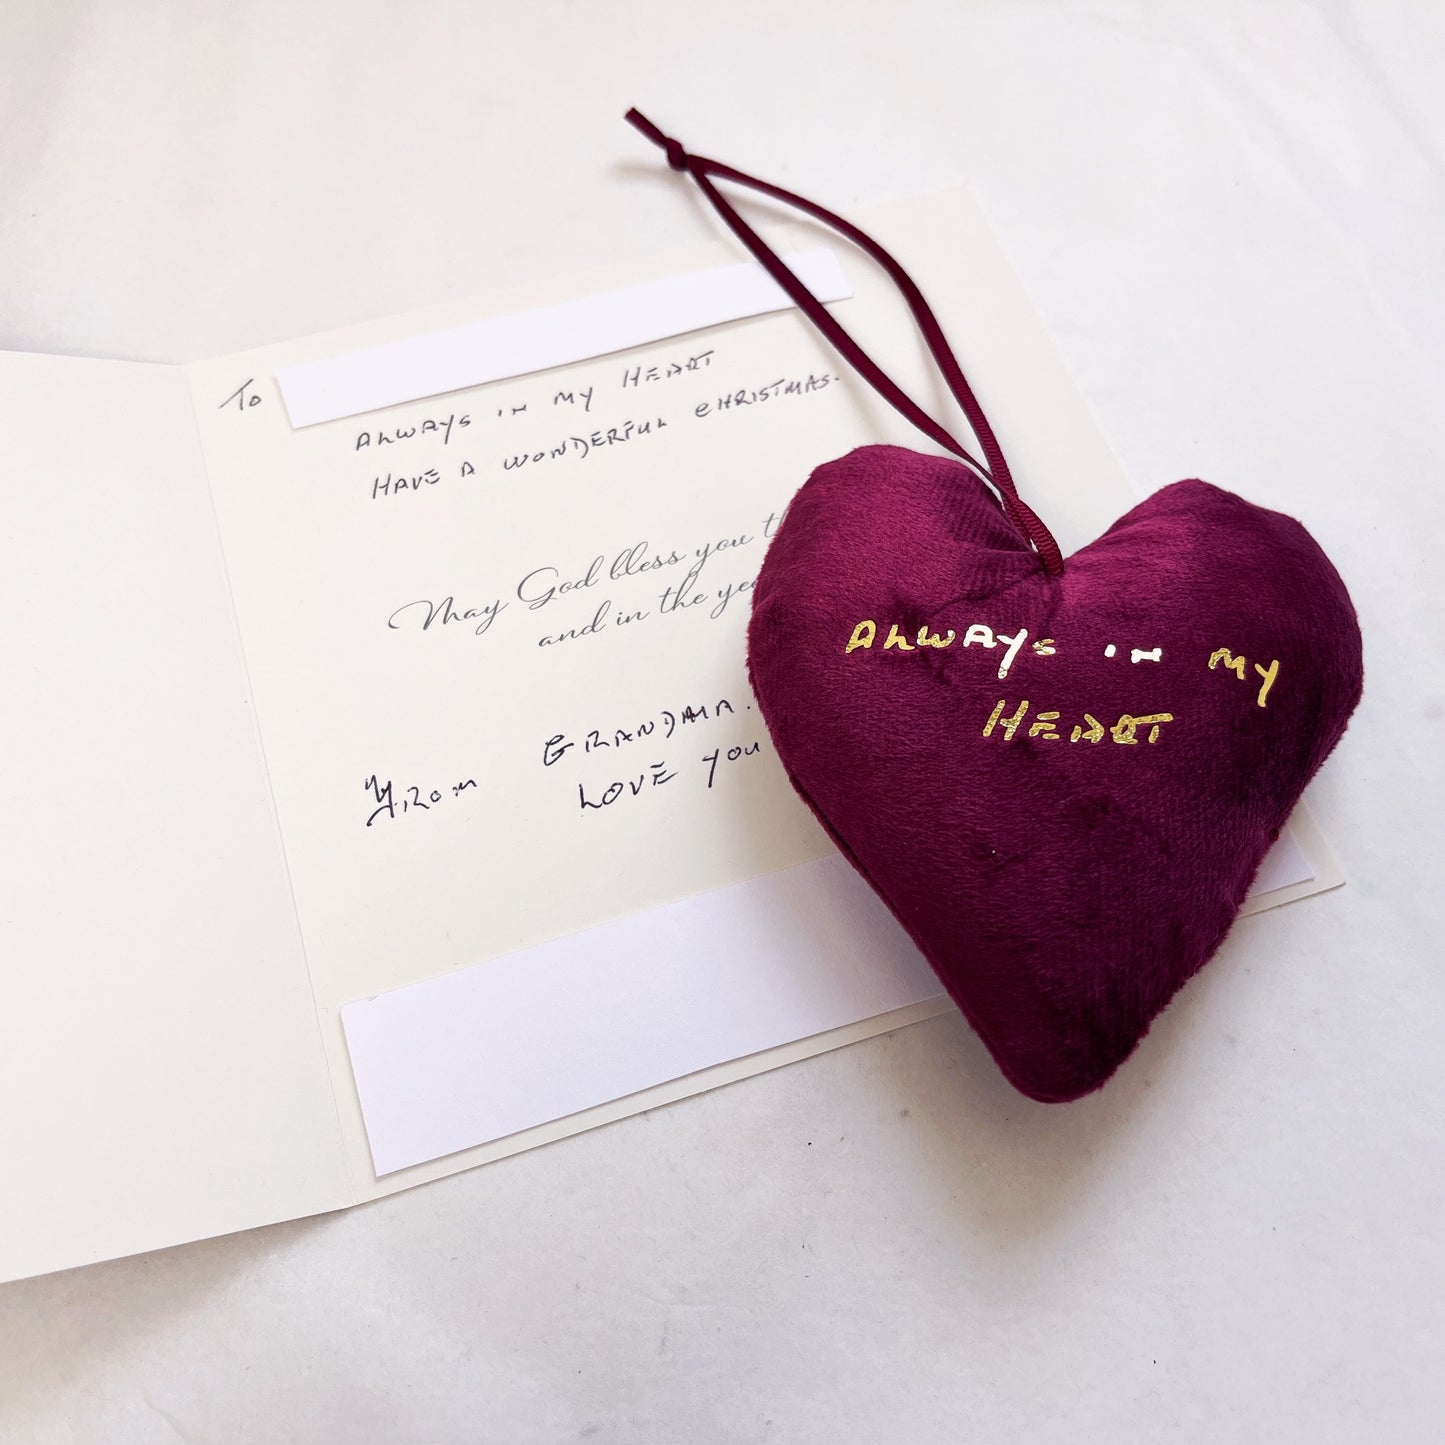 To
ALWAYS IN MY HEART
HAVE A WONDERFUL CHRISTMAS.
May God bless you
and in the
From GRANDMA.
LOVE YOU
ALWAYS IN MY
HEART